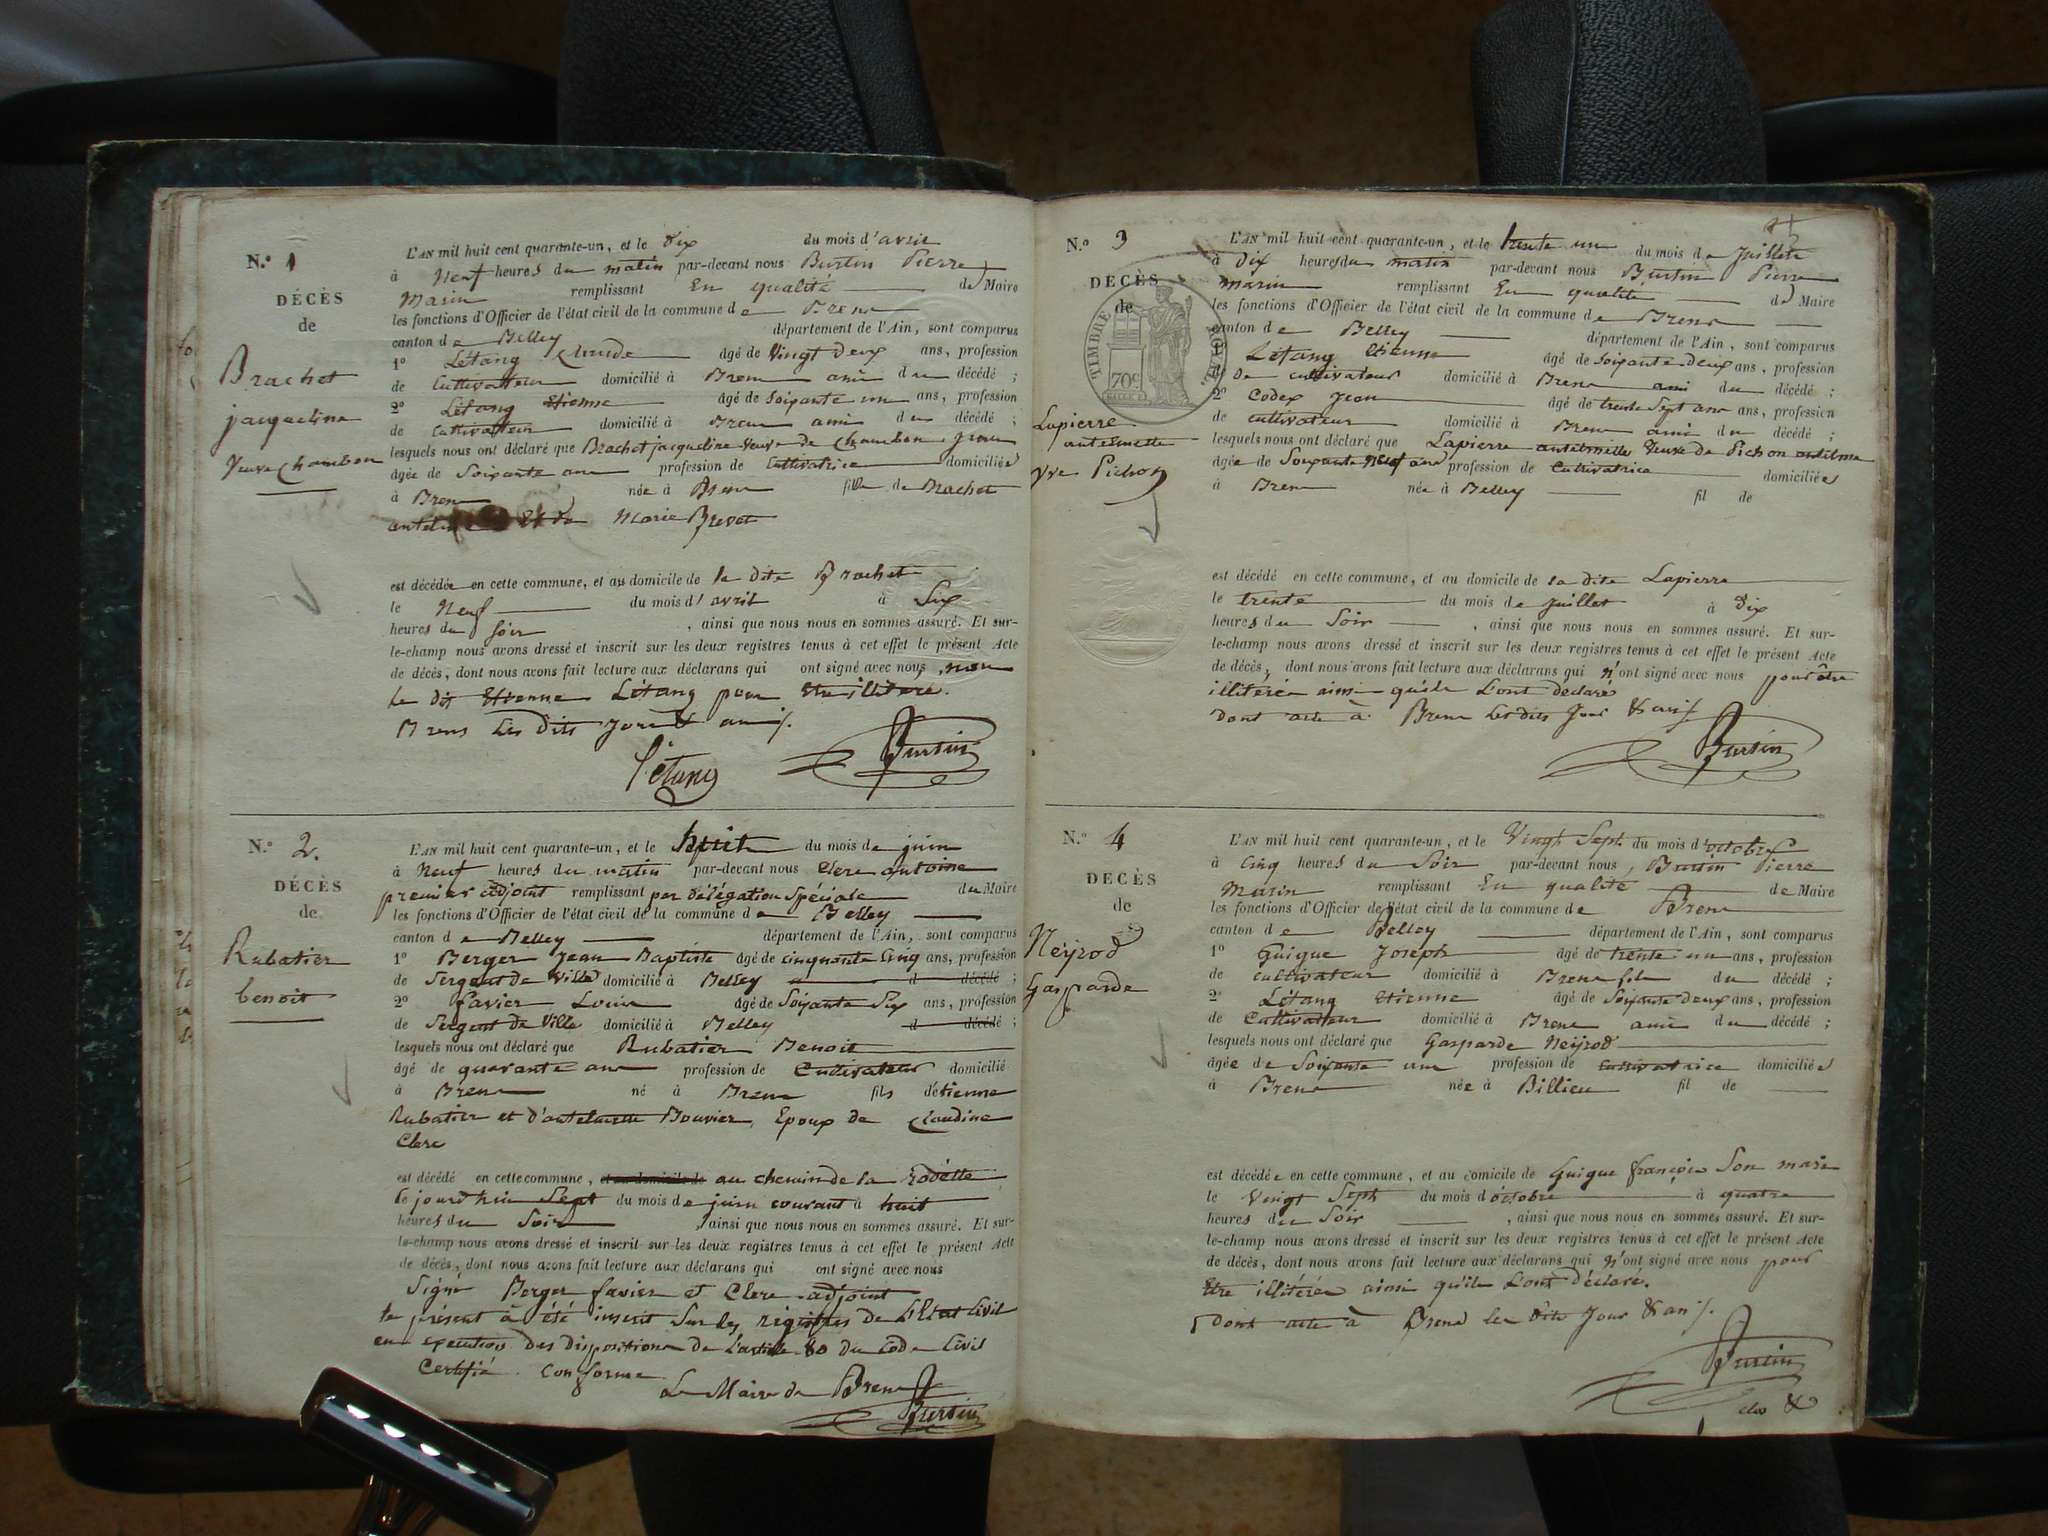 N.º 1
DÉCÈS
de
Brachet
jacqueline
Veuve Chambon
L'AN mil huit cent quarante-un, et le dix du mois d'avril
à Neuf heures du matin par-devant nous Burtin Pierre
Marin remplissant En qualité de Maire
les fonctions d'Officier de l'état civil de la commune de Brens
canton de Belley département de l'Ain, sont comparus
1º Létang Claude âgé de Vingt deux ans, profession
de Cultivateur domicilié à Brens ami du décédé ;
2º Létang Etienne âgé de Soixante un ans, profession
de Cultivateur domicilié à Brens ami du décédé ;
lesquels nous ont déclaré que Brachet jacqueline Veuve de Chambon Jean
âgée de Soixante ans profession de Cultivatrice domiciliée
à Brens née à Brens fille de Brachet
antelme Et de Marie Brevet
est décédée en cette commune, et au domicile de la dite Brachet
le Neuf du mois d'avril à Six
heures du Soir , ainsi que nous nous en sommes assuré. Et sur-
le-champ nous avons dressé et inscrit sur les deux registres tenus à cet effet le présent Acte
de décès, dont nous avons fait lecture aux déclarans qui ont signé avec nous, non
le dit Etienne Létang pour Etre illiteré.
Brens Les dits jour & an
Létang Burtin
N.º 2.
DÉCÈS
de
Rubatier
benoit
L'AN mil huit cent quarante-un, et le huit du mois de juin
à Neuf heures du matin par-devant nous Clerc antoine
premier adjoint remplissant par délégation Spéciale du Maire
les fonctions d'Officier de l'état civil de la commune de Belley
canton de Belley département de l'Ain, sont comparus
1º Berger Jean Baptiste âgé de cinquante Cinq ans, profession
de Sergent de Ville domicilié à Belley d décédé ;
2º favier Louis âgé de Soixante Six ans, profession
de Sergent de Ville domicilié à Belley d décédé ;
lesquels nous ont déclaré que Rubatier Benoit
âgé de quarante ans profession de Cultivateur domicilié
à Brens né à Brens fils détienne
Rubatier et d'antelmette Bouvier, Epoux de Claudine
Clerc
est décédé en cette commune, et au domicile de au chemin de la rodette
le jourdhui Sept du mois de juin courant à huit
heures du Soir , ainsi que nous nous en sommes assuré. Et sur-
le-champ nous avons dressé et inscrit sur les deux registres tenus à cet effet le présent Acte
de décès, dont nous avons fait lecture aux déclarans qui ont signé avec nous
Signé Berger favier et Clerc adjoint
le présent à été inscrit Sur les registres de L'Etat Civil
en execution des dispositions de L'article 80 du Code Civil
Certifié Conforme
Le Maire de Brens
Burtin
N.º 3
DÉCÈS
de
TIMBRE ROYAL
70c
Lapierre
antelmette
Vve Pichon
L'AN mil huit cent quarante-un, et le trente un du mois de Juillet
à dix heures du matin par-devant nous Burtin Pierre
Marin remplissant En qualité de Maire
les fonctions d'Officier de l'état civil de la commune de Brens
canton de Belley département de l'Ain, sont comparus
Létang Etienne âgé de Soixante deux ans, profession
de cultivateur domicilié à Brens ami du décédé ;
2º Codex Jean âgé de trente Sept ans ans, profession
de cultivateur domicilié à Brens ami du décédé ;
lesquels nous ont déclaré que Lapierre antelmette Veuve de Pichon antelme
âgée de Soixante Neuf ans profession de Cultivatrice domiciliée
à Brens née à Belley fil de
est décédé en cette commune, et au domicile de la dite Lapierre
le trente du mois de juillet à dix
heures du Soir , ainsi que nous nous en sommes assuré. Et sur-
le-champ nous avons dressé et inscrit sur les deux registres tenus à cet effet le présent Acte
de décès, dont nous avons fait lecture aux déclarans qui n'ont signé avec nous pour être
illiterés ainsi qu'ils L'ont déclaré
dont acte à Brens les dits Jour & an
Burtin
N.º 4
DÉCÈS
de
Neyrod
Gasparde
L'AN mil huit cent quarante-un, et le Vingt Sept du mois d'octobre
à Cinq heures du Soir par-devant nous Burtin Pierre
Marin remplissant En qualité de Maire
les fonctions d'Officier de l'état civil de la commune de Brens
canton de Belley département de l'Ain, sont comparus
1º Guigue Joseph âgé de trente un ans, profession
de cultivateur domicilié à Brens fils du décédé ;
2º Létang Etienne âgé de Soixante deux ans, profession
de Cultivateur domicilié à Brens ami du décédé ;
lesquels nous ont déclaré que Gasparde Neyrod
âgée de Soixante ans profession de Cultivatrice domiciliée
à Brens née à Billieu fil de
est décédée en cette commune, et au domicile de Guigue françois Son mari
le Vingt Sept du mois d'octobre à quatre
heures du Soir , ainsi que nous nous en sommes assuré. Et sur-
le-champ nous avons dressé et inscrit sur les deux registres tenus à cet effet le présent Acte
de décès, dont nous avons fait lecture aux déclarans qui n'ont signé avec nous pour
Etre illitérés ainsi qu'ils L'ont déclaré.
dont acte à Brens les dits Jour & an
Burtin